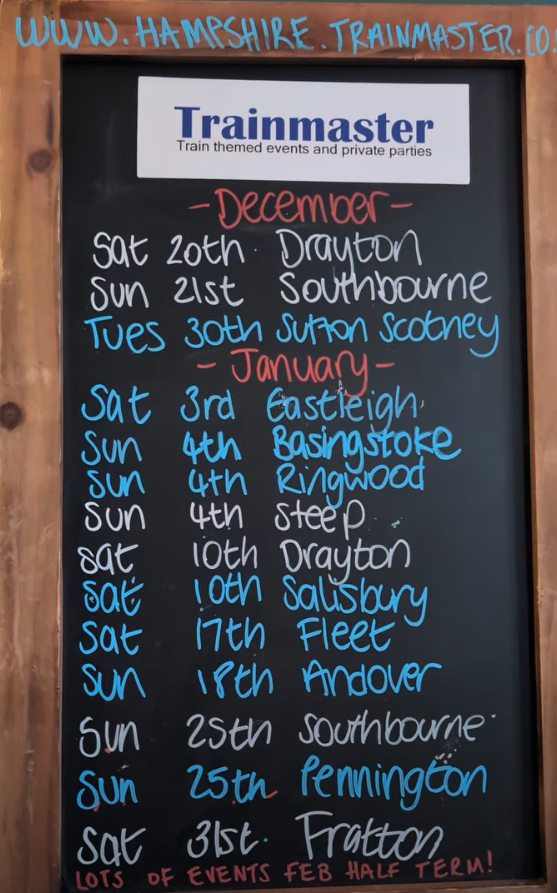 WWW.HAMPSHIRE.TRAINMASTER.CO.
Trainmaster
Train themed events and private parties
- December -
Sat 20th Drayton
Sun 21st Southbourne
Tues 30th Sutton Scotney
- January -
Sat 3rd Eastleigh
Sun 4th Basingstoke
Sun 4th Ringwood
Sun 4th Steep
Sat 10th Drayton
Sat 10th Salisbury
Sat 17th Fleet
Sun 18th Andover
Sun 25th Southbourne
Sun 25th Pennington
Sat 31st Fratton
LOTS OF EVENTS FEB HALF TERM!